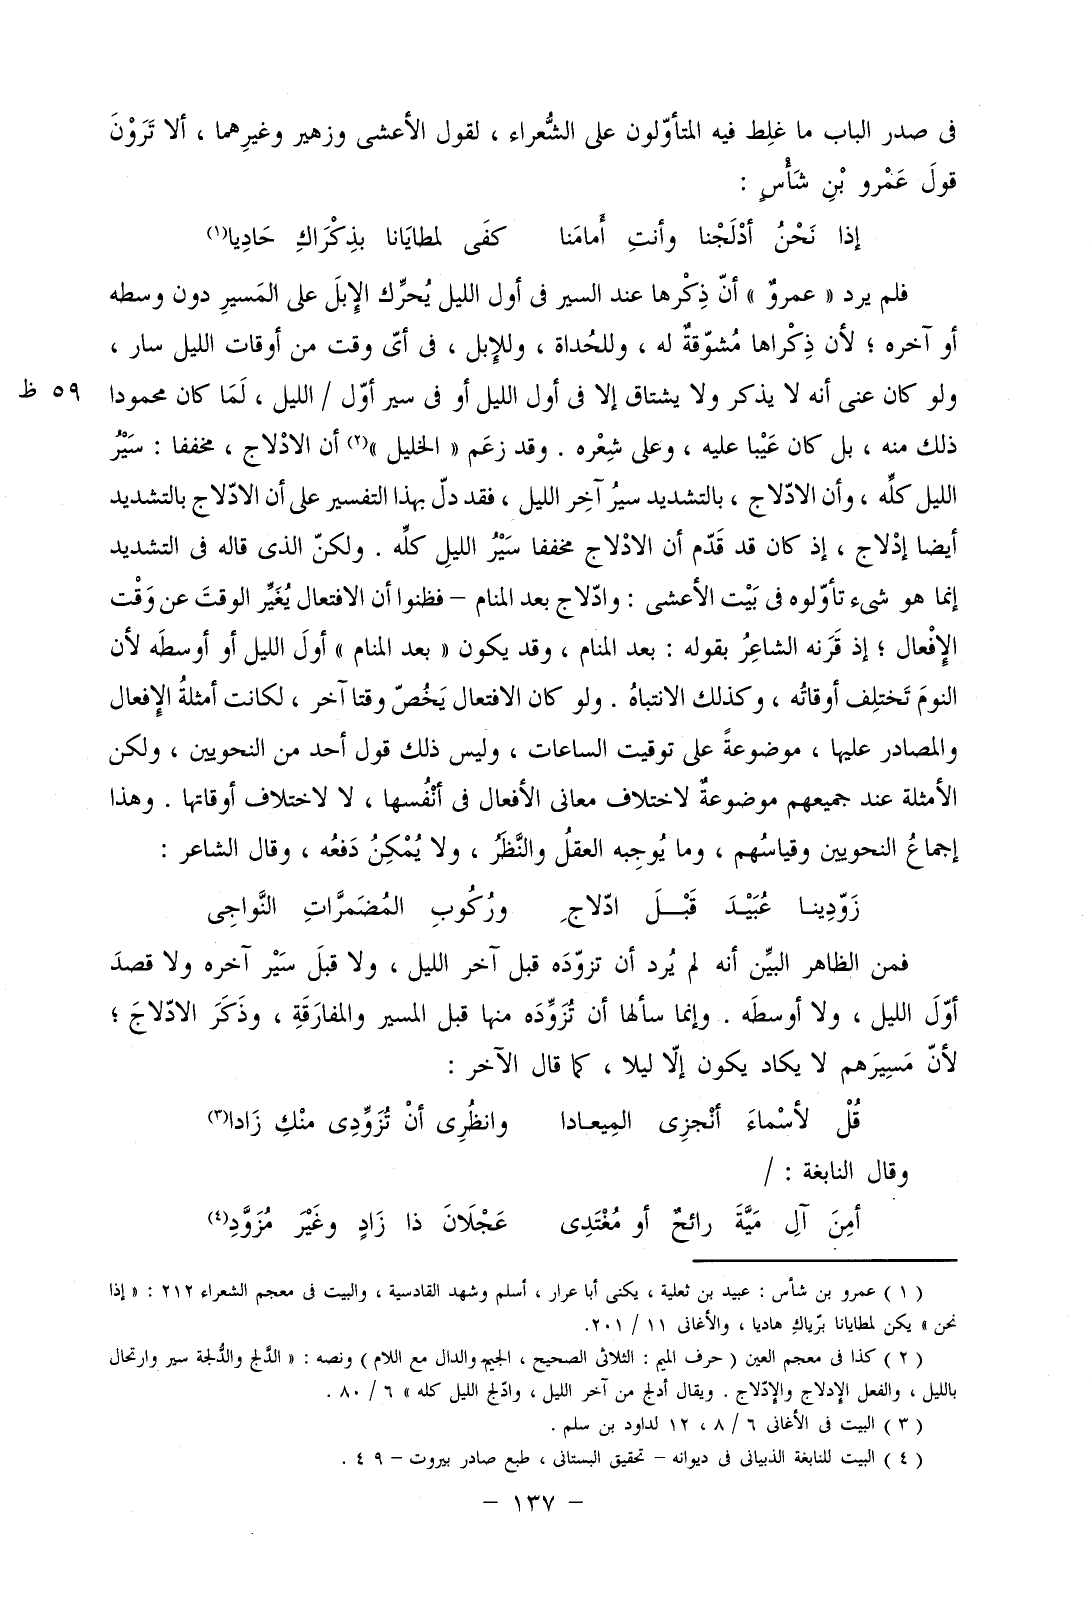 فى صدر الباب ما غلِط فيه المتأوّلون على الشُّعراء ، لقول الأعشى وزهير وغيرِهما ، ألا تَرَوْنَ
قولَ عَمْرو بْنِ شَأْسٍ :
إذا نَحْنُ أدْلَجْنا وأنتِ أَمامَنا كفَى لمطايَانا بذِكْرَاكِ حَادِيا(١)
فلم يرد « عمروٌ » أنّ ذِكْرها عند السير فى أول الليل يُحرِّك الإبلَ على المَسيرِ دون وسطه
أو آخره ؛ لأن ذِكْراها مُشوّقةٌ له ، وللحُداة ، وللإبل ، فى أىّ وقت من أوقات الليل سار ،
ولو كان عنى أنه لا يذكر ولا يشتاق إلا فى أول الليل أو فى سير أوّل / الليل ، لَمَا كان محمودا ٥٩ ظ
ذلك منه ، بل كان عَيْبا عليه ، وعلى شِعْره . وقد زعَم « الخليل »(٢) أن الادْلاج ، مخففا : سَيْرُ
الليل كلِّه ، وأن الادّلاج ، بالتشديد سيرُ آخِر الليل ، فقد دلّ بهذا التفسير على أن الادّلاج بالتشديد
أيضا إدْلاج ، إذ كان قد قَدّم أن الادْلاج مخففا سَيْرُ الليلِ كلِّه . ولكنّ الذى قاله فى التشديد
إنما هو شىء تأوّلوه فى بَيْت الأعشى : وادّلاج بعد المنام – فظنوا أن الافتعال يُغَيِّر الوقتَ عن وَقْت
الإفْعال ؛ إذ قَرَنه الشاعِرُ بقوله : بعد المنام ، وقد يكون « بعد المنام » أولَ الليل أو أوسطَه لأن
النومَ تَختلِف أوقاتُه ، وكذلك الانتباهُ . ولو كان الافتعال يَخُصّ وقتا آخر ، لكانت أمثلةُ الإفعال
والمصادر عليها ، موضوعةً على توقيت الساعات ، وليس ذلك قول أحد من النحويين ، ولكن
الأمثلة عند جميعهم موضوعةٌ لاختلاف معانى الأفعال فى أنْفُسها ، لا لاختلاف أوقاتها . وهذا
إجماعُ النحويين وقياسُهم ، وما يُوجِبه العقلُ والنَّظَرُ ، ولا يُمْكِنُ دَفعُه ، وقال الشاعر :
زَوِّدِينـا عُبَيْـدَ قَبْــلَ ادّلاجِ ورُكُوبِ المُضمَرَّاتِ النَّواجِى
فمن الظاهر البيِّن أنه لم يُرد أن تزوّدَه قبل آخر الليل ، ولا قبلَ سَيْر آخره ولا قصدَ
أوّلَ الليل ، ولا أوسطَه . وإنما سألها أن تُزَوِّدَه منها قبل المسير والمفارَقَةِ ، وذَكَرَ الادّلاجَ ؛
لأنّ مَسِيرَهم لا يكاد يكون إلّا ليلا ، كما قال الآخر :
قُلْ لأسْماءَ أنْجزِى المِيعـادا وانظُرِى أنْ تُزَوِّدِى منْكِ زَادا(٣)
وقال النابغة : /
أمِنَ آلِ مَيَّةَ رائحٌ أو مُغْتَدِى عَجْلَانَ ذا زَادٍ وغَيْرَ مُزَوَّدِ(٤)
( ١ ) عمرو بن شأس : عبيد بن ثعلبة ، يكنى أبا عرار ، أسلم وشهد القادسية ، والبيت فى معجم الشعراء ٢١٢ : « إذا
نحن » يكن لمطايانا برّياكِ هاديا ، والأغانى ١١ / ٢٠١.
( ٢ ) كذا فى معجم العين ( حرف الميم : الثلاثى الصحيح ، الجيم والدال مع اللام ) ونصه : « الدَّلج والدُّلجة سير وارتحال
بالليل ، والفعل الإدلاج والإدّلاج . ويقال أدلج من آخر الليل ، وادّلج الليل كله » ٦ / ٨٠ .
( ٣ ) البيت فى الأغانى ٦ / ٨ ، ١٢ لداود بن سلم .
( ٤ ) البيت للنابغة الذبيانى فى ديوانه – تحقيق البستانى ، طبع صادر بيروت – ٤٩ .
– ١٣٧ –